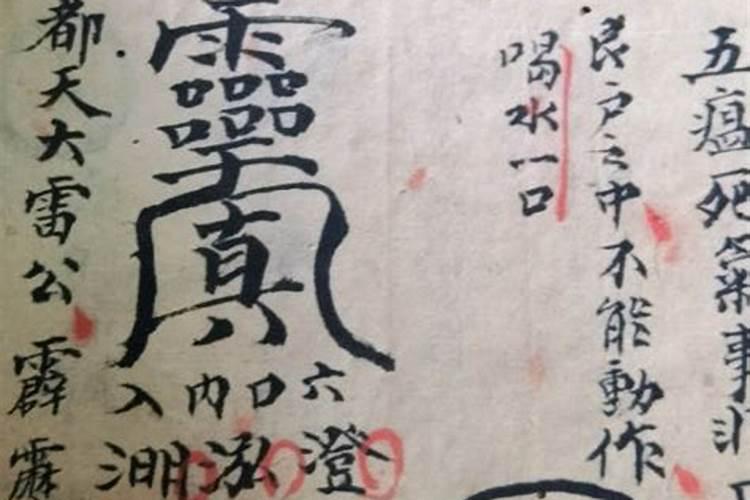 五瘟死氣事非
艮户之中不能動作
喝水一口
真
六口内入
澄泓
都天大雷公霹